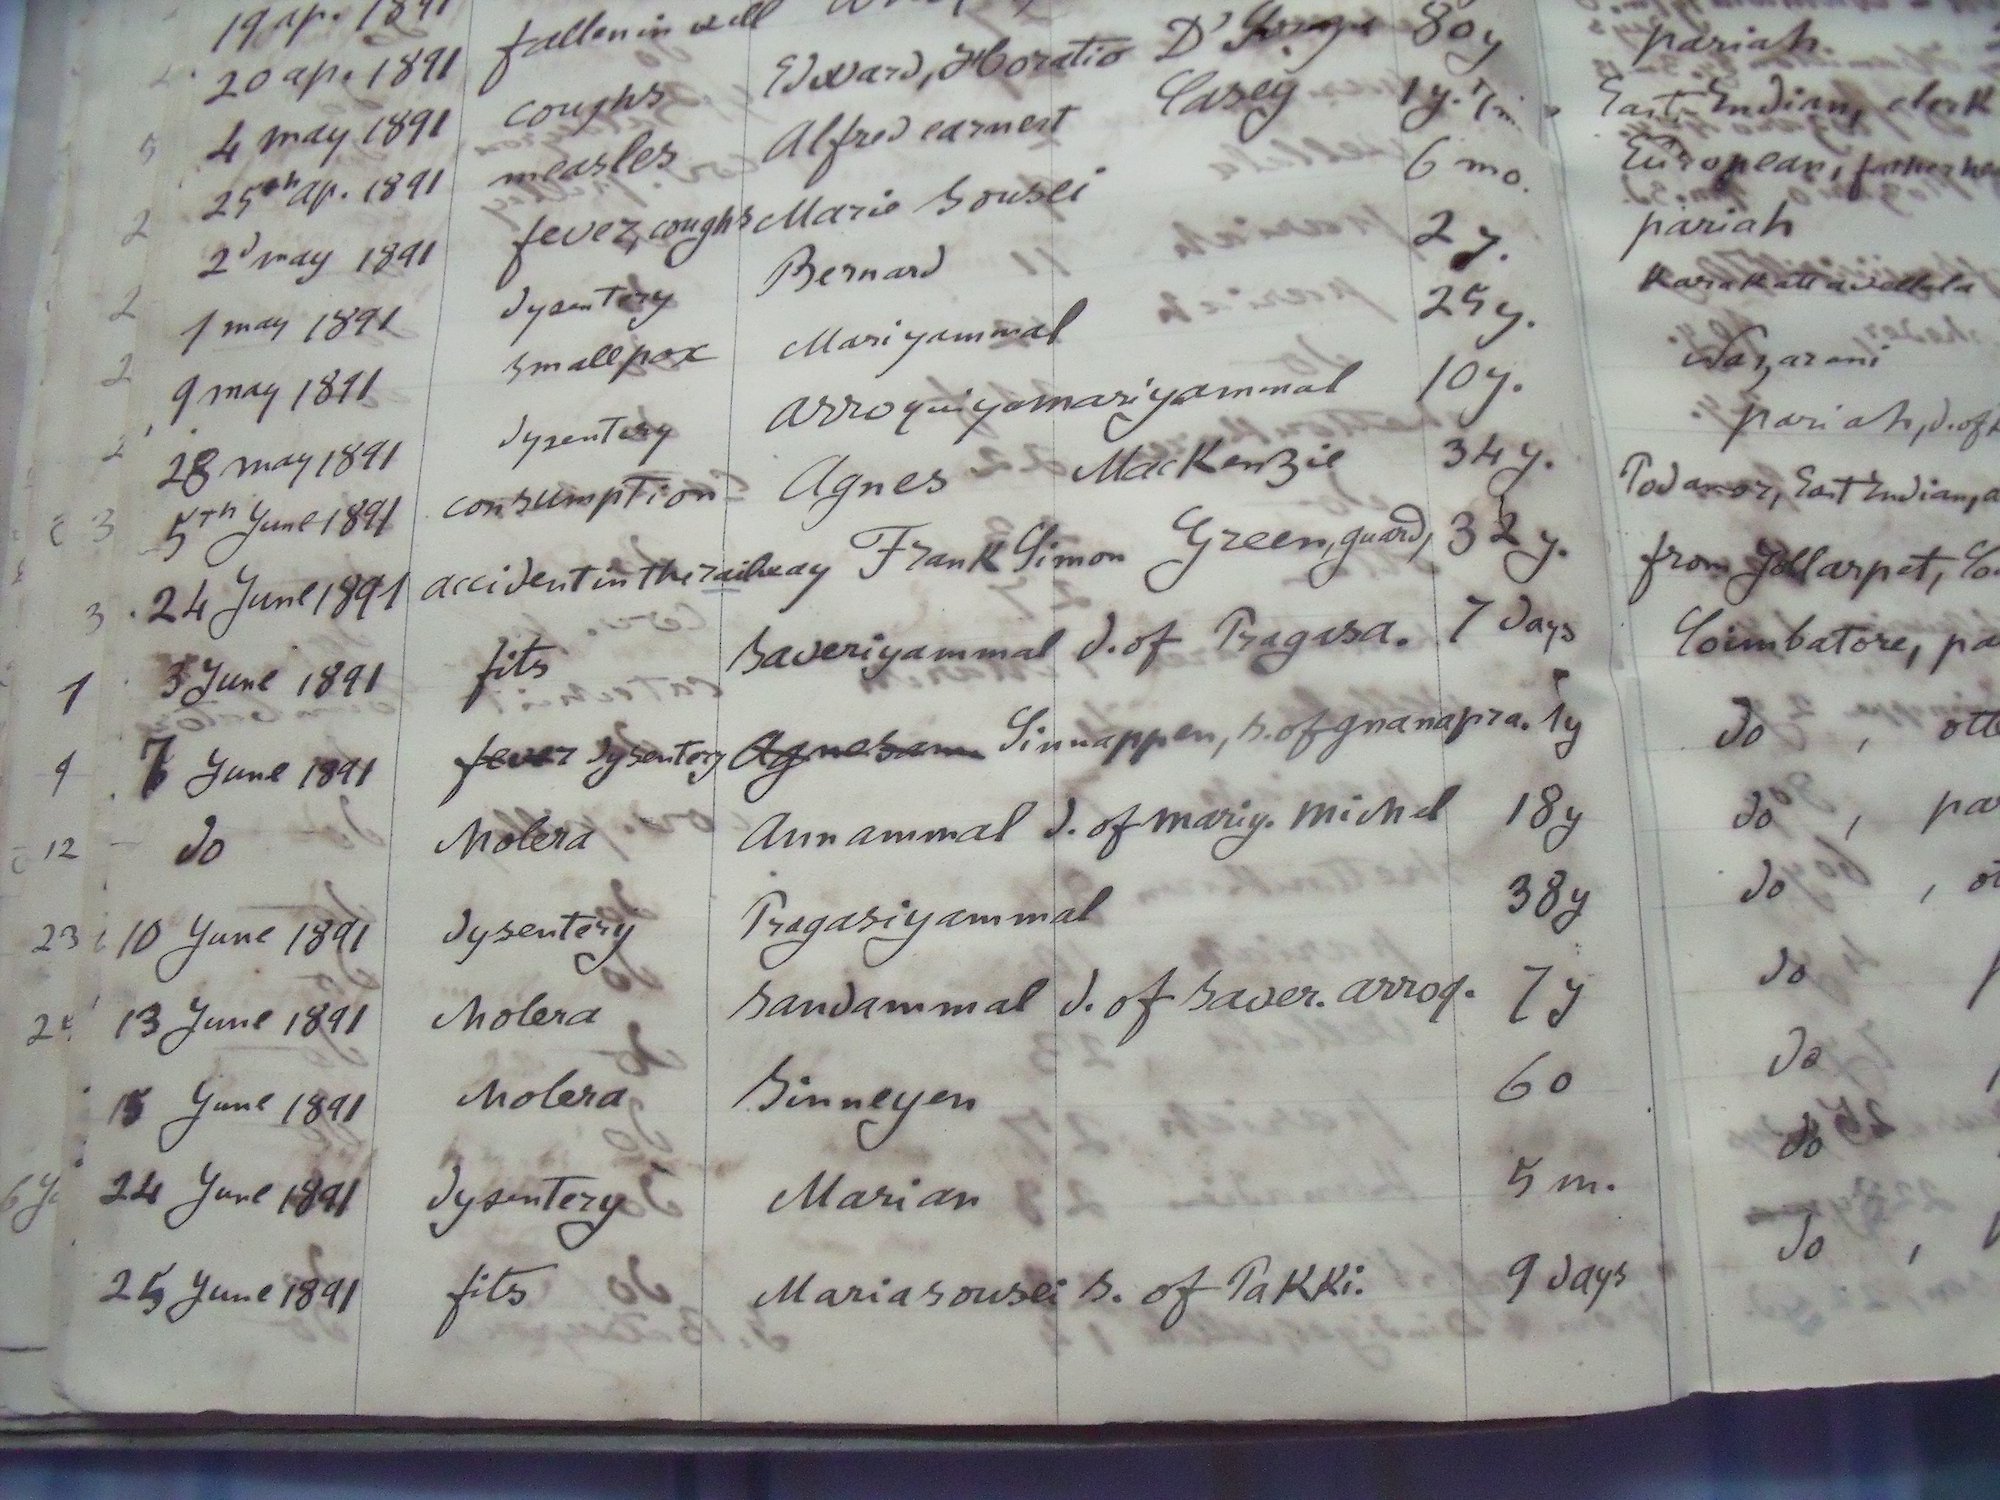 19 ap. 1891 fallen in well 80y pariah.
20 ap. 1891 coughs Edward, Horatio D' 1y. East Indian, clerk
4 may 1891 measles Alfred earnest Casey 6 mo. European,
25th ap. 1891 fever, coughs Marie Sousei 2 y. pariah
2d may 1891 dysentery Bernard 25 y. Karakattavellala
1 may 1891 smallpox Mariyammal 10 y. Nazarani
9 may 1891 dysentery arroquiyamariyammal pariah, d. of
28 may 1891 consumption Agnes MacKenzie 34 y. East Indian,
5th June 1891 accident in the railway Frank Simon Green, guard, 32 y. from Jollarpet,
3 24 June 1891 fits Saveriyammal d. of Pragasa. 7 days Coimbatore,
1 3 June 1891 fever dysentery Sinnappen, s. of gnanapra. 1y do ,
9 7 June 1891 cholera Annammal d. of mariy. michel 18y do ,
12 do dysentery Pragasiyammal 38y do ,
23 10 June 1891 cholera Sandammal d. of Saver. arroq. 7y do
13 June 1891 cholera Sinneyen 60 do
15 June 1891 dysentery Marian 5 m. do
24 June 1891 fits Mariasousei s. of Pakki. 9 days do ,
25 June 1891